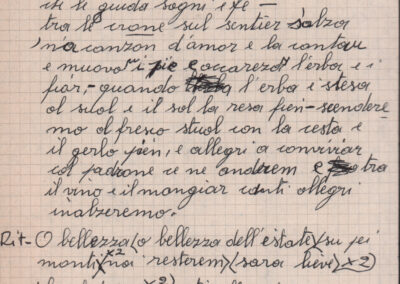 le guida sogni e fe –
tra le crone sul sentier s'alza
'na canzon d'amor e la cantau
e muovon i pie e accarezan l'erba e i
fiar,- quando l'erba è stesa
al suol e il sol la resa fien - scendere-
mo al fresco stuol con la cesta e
il gerlo pien, e allegri a convivïar
col padrone ce ne anderem e tra
il vino e il mangiar canti allegri
inalzeremo.
Rit- O bellezza (o bellezza dell'estate) su pei
monti) x2 noi resterem) (sara lieve) x2)
x2)